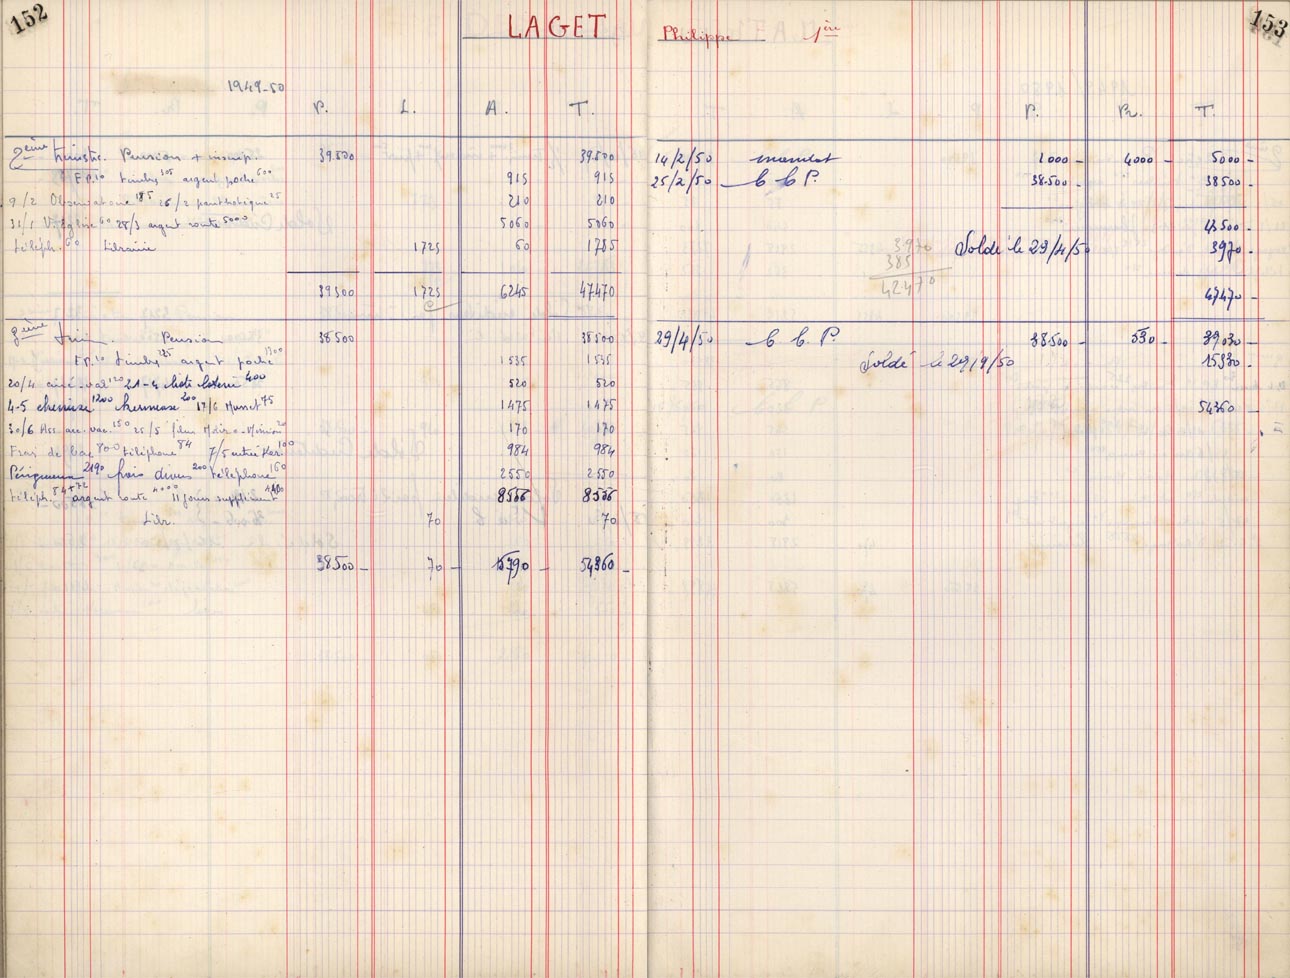 152
LAGET
Philippe 1ère
153
1949-50
P. L. A. T.
P. Pr. T.
2ème trimestre. Pension + inscrip. 39.500 39.500
F.P.10 timbres 305 argent poche 600 915 915
9/2 Observatoire 185 26/2 panthotèque 25 210 210
31/1 60 28/3 argent route 5000 5060 5060
téléph. 60 Librairie 1725 60 1785
39500 1725 6245 47470
14/2/50 mandat 1000 - 4000 - 5000 -
25/2/50 C C P. 38.500 - 38500 -
43500 -
Soldé le 29/4/50 3970 -
3970
385
42470
47470 -
3ème Trim. Pension 38500 38500
F.P.10 timbres 225 argent poche 1300 1535 1535
20/4 ciné-val 120 21-4 400 520 520
4-5 chemise 1200 kermesse 200 17/6 Musset 75 1475 1475
30/6 Ass. acc. vac. 150 25/5 film 20 170 170
Frais de bac 800 téléphone 84 7/5 entrée Ker. 100 984 984
Périgueux 2190 frais divers 200 téléphone 160 2550 2550
téléph. 84+72 argent route 4000 11 jours supplément 4400 8556 8556
Libr. 70 70
38500 - 70 - 15790 - 54360 -
29/4/50 C C P. 38.500 - 530 - 39.030 -
Soldé le 29/9/50 15330 -
54360 -